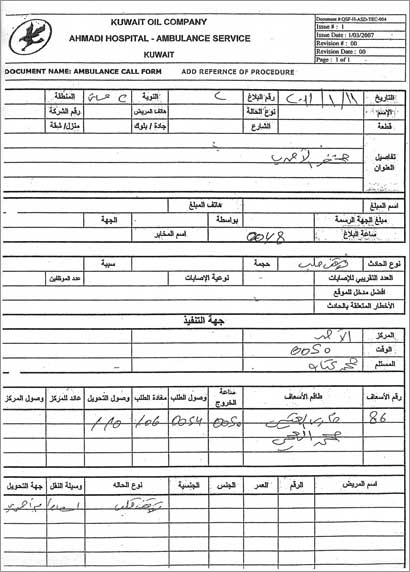 KUWAIT OIL COMPANY
AHMADI HOSPITAL - AMBULANCE SERVICE
KUWAIT
Issue # : 1
Issue Date : 1/03/2007
Revision # : 00
Revision Date : 00
Page : 1 of 1
DOCUMENT NAME: AMBULANCE CALL FORM ADD REFERNCE OF PROCEDURE
التاريخ رقم البلاغ النوبة المنطقة
الإسم نوع الحالة هاتف المريض رقم الشركة
قطعة الشارع جادة / بلوك منزل/ شقة
تفاصيل العنوان
اسم المبلغ هاتف المبلغ
مبلغ الجهة الرسمة بواسطة الجهة
ساعة البلاغ 0048 اسم المخابر
نوع الحادث حجمة سببة
العدد التقريبي للإصابات نوعية الإصابات عدد المرتفقين
افضل مدخل للموقع
الأخطار المتعلقة بالحادث
جهة التنفيذ
المركز
الوقت 0050
المستلم
رقم الأسعاف طاقم الأسعاف ساعة الخروج وصول الطلب مغادة الطلب وصول التحويل عائد للمركز وصول المركز
86 0050 0054 106 110
اسم المريض الرقم العمر الجنس الجنسية نوع الحاله وسيلة النقل جهة التحويل